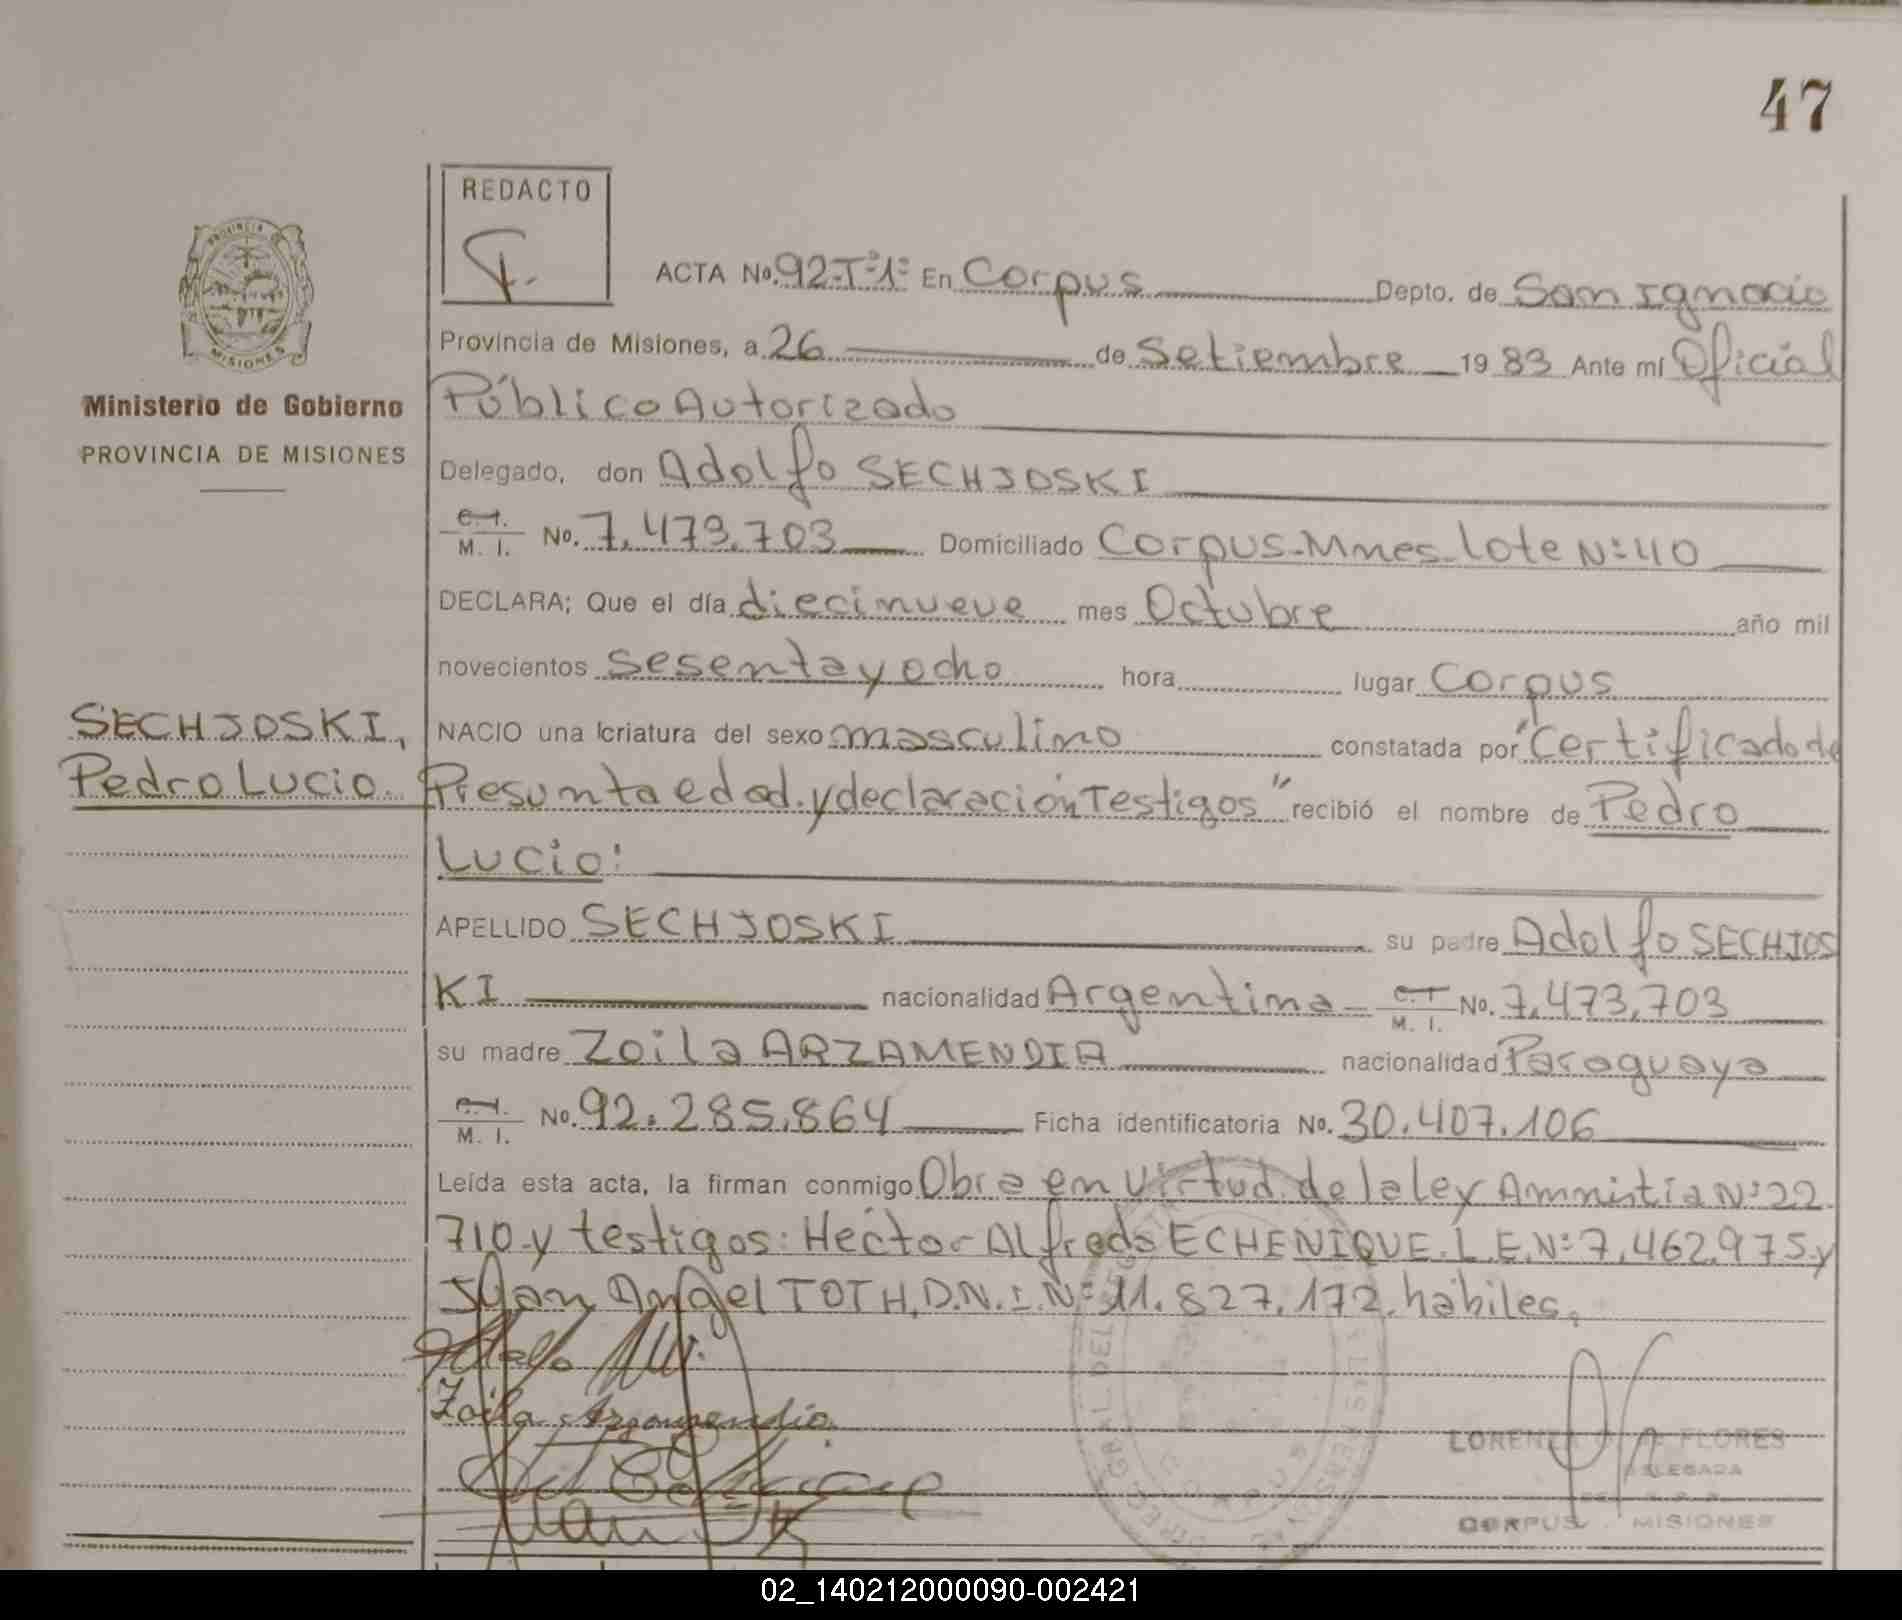 47
REDACTO
PROVINCIA DE
MISIONES
Ministerio de Gobierno
PROVINCIA DE MISIONES
ACTA No. 92-Tº1º En Corpus Depto. de San Ignacio
Provincia de Misiones, a 26 de Setiembre 1983 Ante mí Oficial
Público Autorizado
Delegado, don Adolfo SECHJOSKI
C.I. M. I. No. 7.473.703 Domiciliado Corpus-Mnes-lote Nº40
DECLARA; Que el día diecinueve mes Octubre año mil
novecientos sesenta y ocho hora lugar Corpus
SECHJOSKI,
Pedro Lucio.
NACIO una criatura del sexo masculino constatada por "Certificado de
Presunta edad. y declaración Testigos" recibió el nombre de Pedro
Lucio:
APELLIDO SECHJOSKI su padre Adolfo SECHJOS
KI nacionalidad Argentina C.I. M. I. No. 7.473.703
su madre Zoila ARZAMENDIA nacionalidad Paraguaya
C.I. M. I. No. 92.285.864 Ficha identificatoria No. 30.407.106
Leída esta acta, la firman conmigo Obra en virtud de la ley Amnistía Nº22
710-y testigos: Héctor Alfredo ECHENIQUE. L.E.Nº7.462.975.y
Juan Angel TOTH, D.N.I.Nº11.827.172. hábiles.
Zoila Arzamendia
FLORES
CORPUS MISIONES
02_140212000090-002421